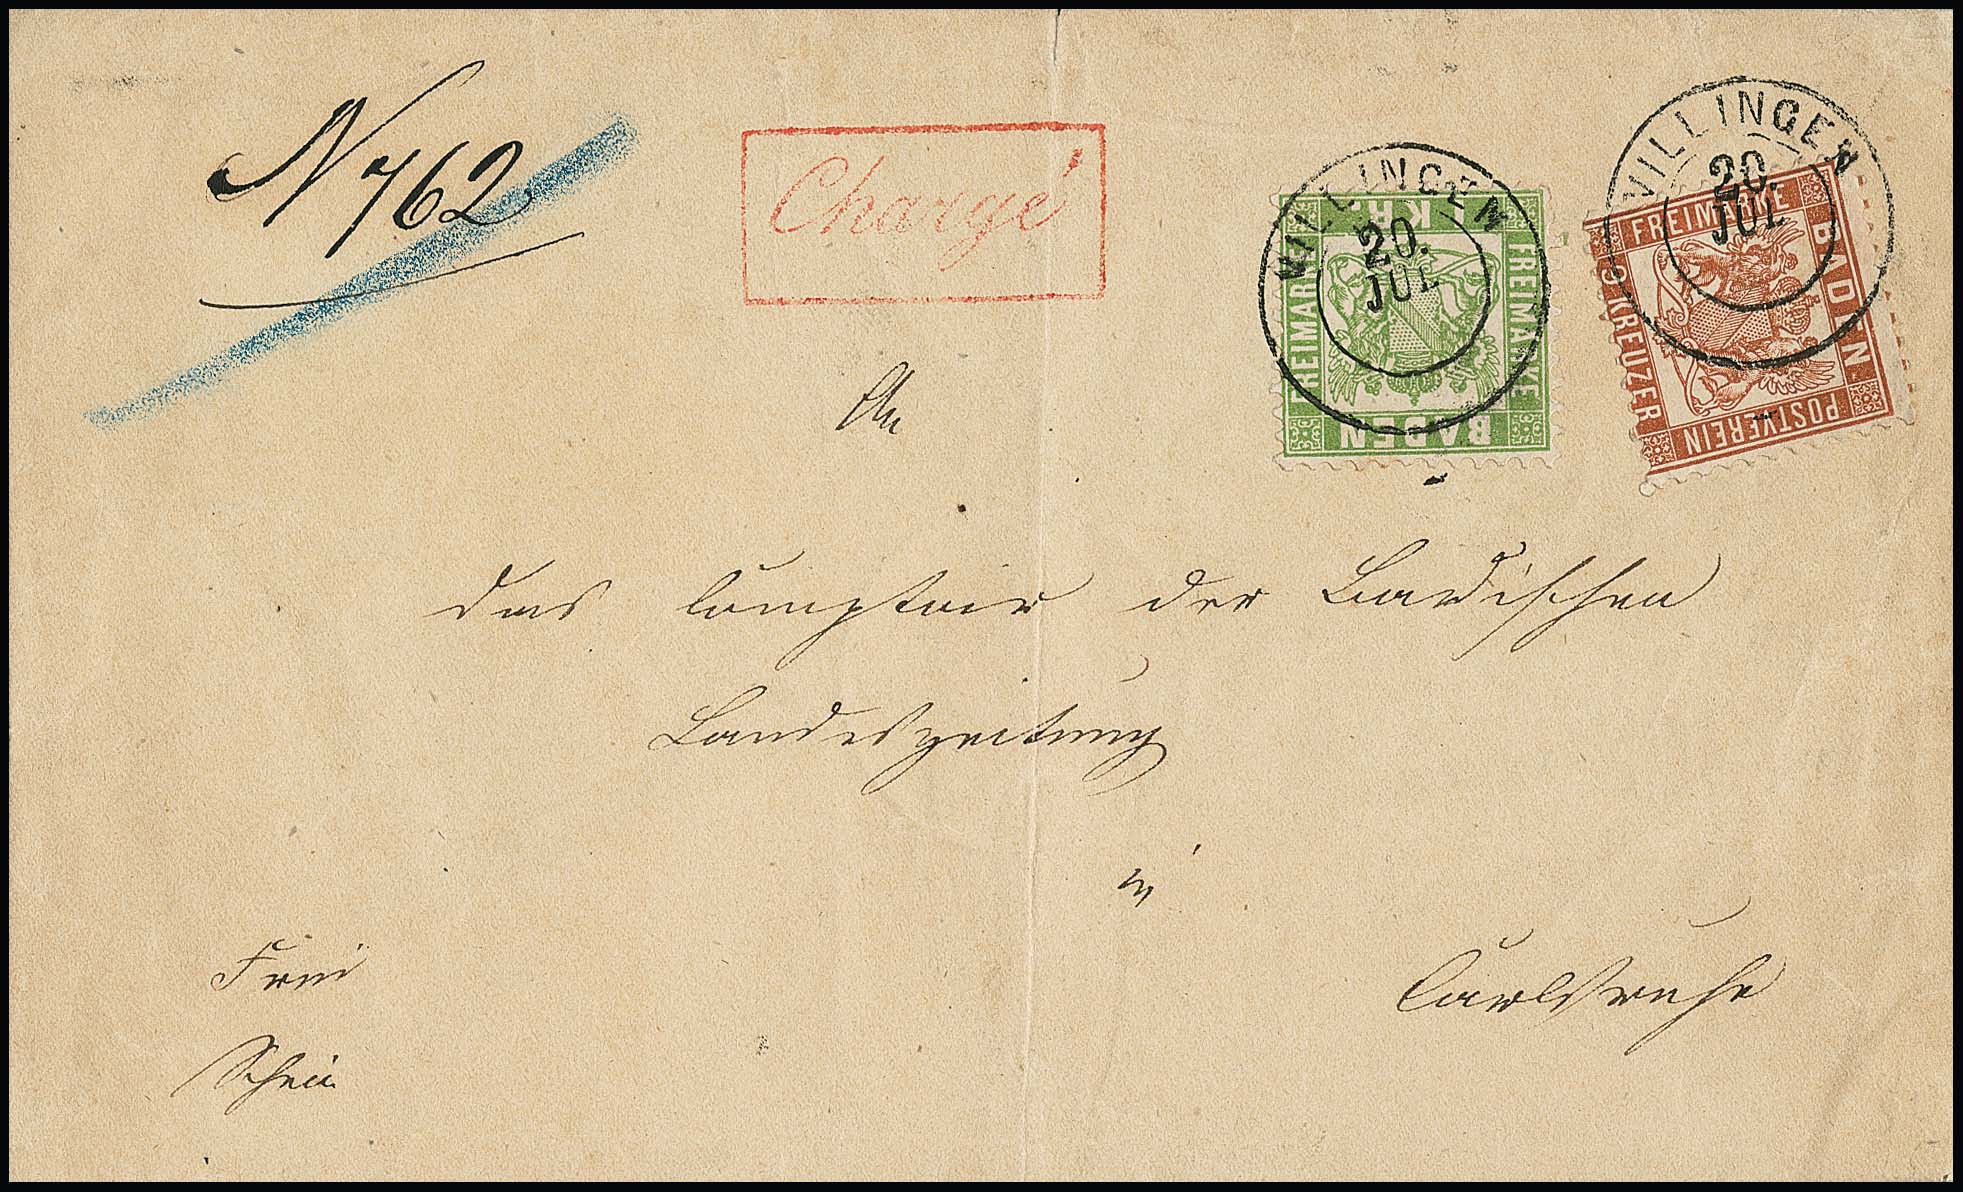 N 762
Chargé
VILLINGEN
20.
JUL
1 KR.
FREIMARKE
FREIMARKE
BADEN
VILLINGEN
20.
JUL
FREIMARKE
BADEN
9 KREUZER
POSTVEREIN
An
das Comptoir der Badischen
Landeszeitung
in
Carlsruhe
Frei
Schein